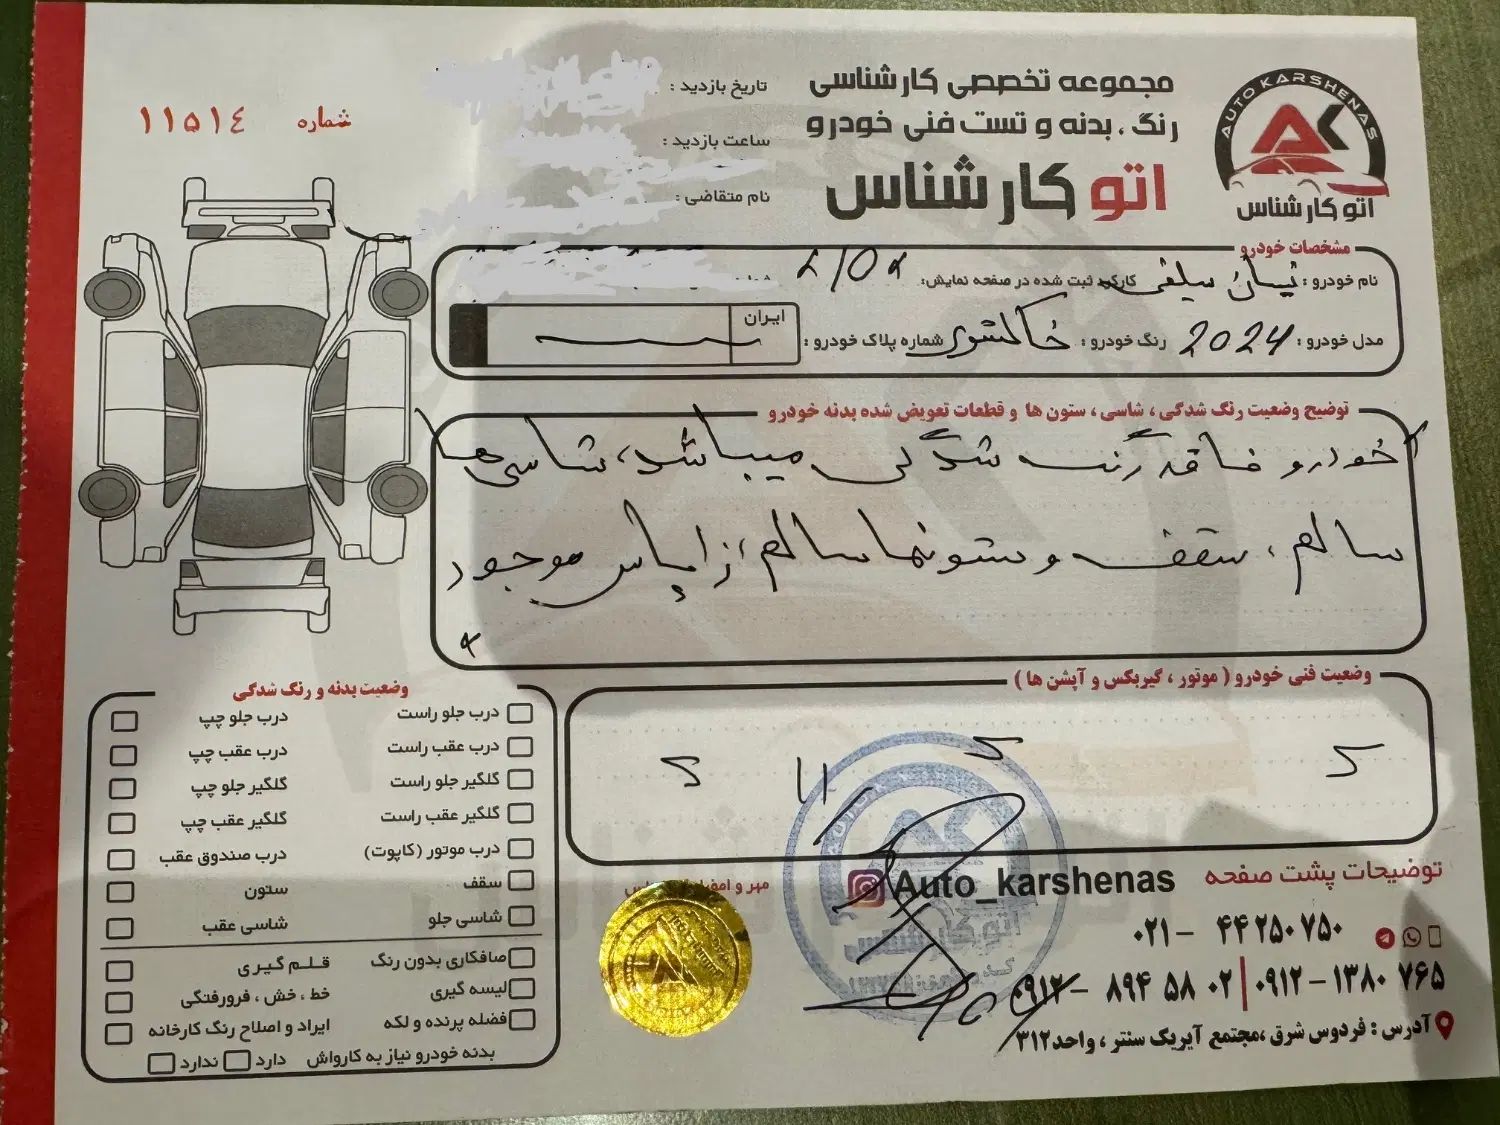 مجموعه تخصصی کارشناسی
رنگ ، بدنه و تست فنی خودرو
اتو کارشناس
AUTO KARSHENAS
AK
اتو کارشناس
تاریخ بازدید :
ساعت بازدید :
نام متقاضی :
شماره ۱۱۵۱٤
مشخصات خودرو
نام خودرو : نیسان سیلفی کارکرد ثبت شده در صفحه نمایش:
مدل خودرو : 2024 رنگ خودرو : خاکستری شماره پلاک خودرو : ایران
توضیح وضعیت رنگ شدگی ، شاسی ، ستون ها و قطعات تعویض شده بدنه خودرو
خودرو فاقد رنگ شدگی میباشد، شاسی ها
سالم ، سقف و ستونها سالم، زاپاس موجود
وضعیت فنی خودرو ( موتور ، گیربکس و آپشن ها )
وضعیت بدنه و رنگ شدگی
درب جلو راست درب جلو چپ
درب عقب راست درب عقب چپ
گلگیر جلو راست گلگیر جلو چپ
گلگیر عقب راست گلگیر عقب چپ
درب موتور (کاپوت) درب صندوق عقب
سقف ستون
شاسی جلو شاسی عقب
صافکاری بدون رنگ قلم گیری
لیسه گیری خط ، خش ، فرورفتگی
فضله پرنده و لکه ایراد و اصلاح رنگ کارخانه
بدنه خودرو نیاز به کارواش دارد ندارد
مهر و امضا
توضیحات پشت صفحه Auto_karshenas
۰۲۱ – ۴۴ ۲۵۰ ۷۵۰
۰۹۱۲ – ۱۳۸۰ ۷۶۵ | ۰۹۱۲ – ۸۹۴ ۵۸ ۰۲
آدرس : فردوس شرق ،مجتمع آیریک سنتر ، واحد۳۱۲
اتو کارشناس